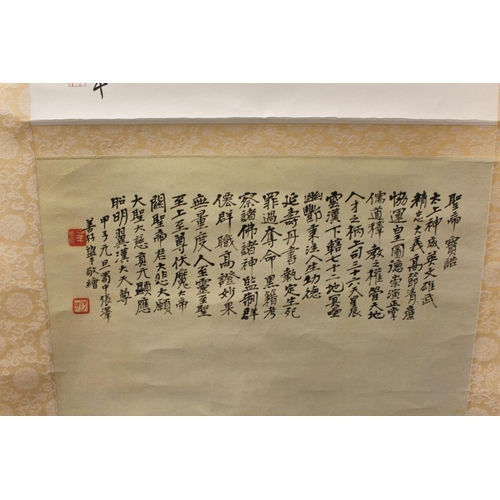 聖帝寶誥
太上神威英文雄武
精忠大義高節清廉
協運皇圖德崇演正掌
儒道釋教之權管天地
人才之柄上司三十六天星辰
雲漢下轄七十二地冥壘
幽酆秉注人生功德
延壽丹書執定生死
罪過奪命黑籍考
察諸佛諸神監制群
僊群職高證妙果
無量度人至靈至聖
至上至尊伏魔大帝
關聖帝君大悲大願
大聖大慈真元顯應
昭明翼漢大天尊
甲子元旦蜀中張澤
善孖盥手敬繪